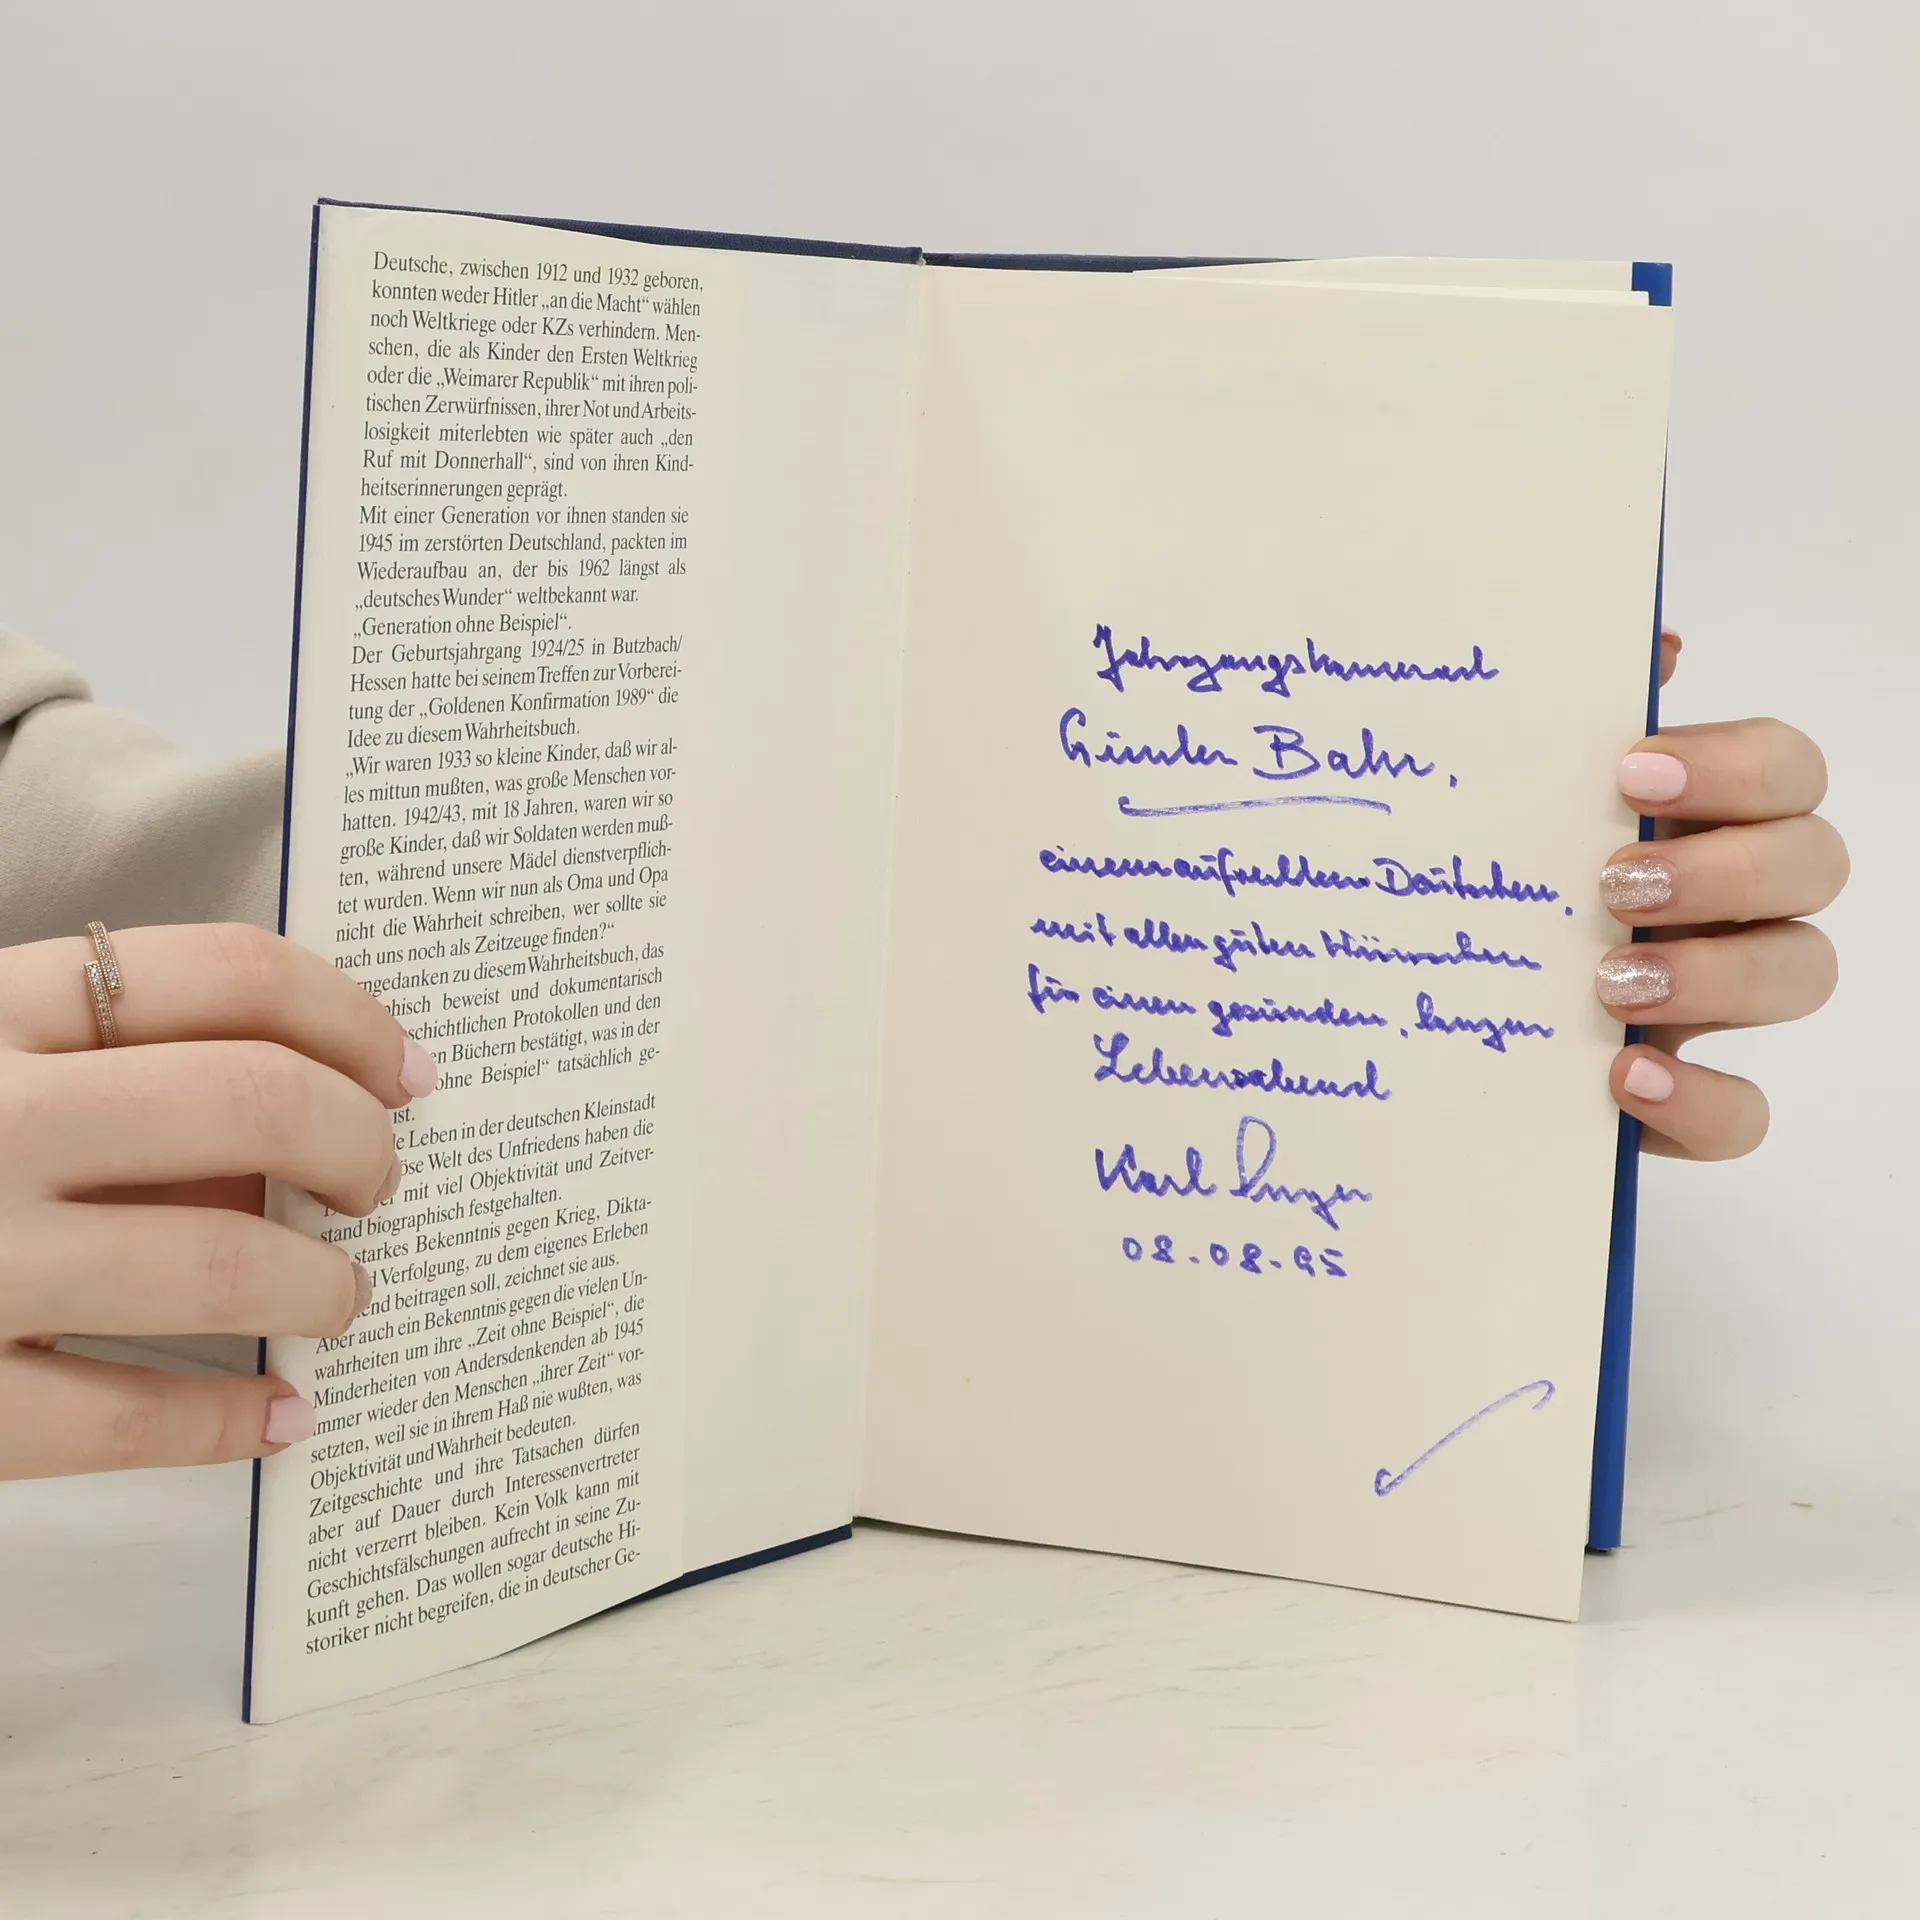 Deutsche, zwischen 1912 und 1932 geboren,
konnten weder Hitler „an die Macht“ wählen
noch Weltkriege oder KZs verhindern. Men-
schen, die als Kinder den Ersten Weltkrieg
oder die „Weimarer Republik“ mit ihren poli-
tischen Zerwürfnissen, ihrer Not und Arbeits-
losigkeit miterlebten wie später auch „den
Ruf mit Donnerhall“, sind von ihren Kind-
heitserinnerungen geprägt.
Mit einer Generation vor ihnen standen sie
1945 im zerstörten Deutschland, packten im
Wiederaufbau an, der bis 1962 längst als
„deutsches Wunder“ weltbekannt war.
„Generation ohne Beispiel“.
Der Geburtsjahrgang 1924/25 in Butzbach/
Hessen hatte bei seinem Treffen zur Vorberei-
tung der „Goldenen Konfirmation 1989“ die
Idee zu diesem Wahrheitsbuch.
„Wir waren 1933 so kleine Kinder, daß wir al-
les mittun mußten, was große Menschen vor-
hatten. 1942/43, mit 18 Jahren, waren wir so
große Kinder, daß wir Soldaten werden muß-
ten, während unsere Mädel dienstverpflich-
tet wurden. Wenn wir nun als Oma und Opa
nicht die Wahrheit schreiben, wer sollte sie
nach uns noch als Zeitzeuge finden?“
ngedanken zu diesem Wahrheitsbuch, das
phisch beweist und dokumentarisch
schichtlichen Protokollen und den
en Büchern bestätigt, was in der
ohne Beispiel“ tatsächlich ge-
ist.
le Leben in der deutschen Kleinstadt
öse Welt des Unfriedens haben die
er mit viel Objektivität und Zeitver-
stand biographisch festgehalten.
starkes Bekenntnis gegen Krieg, Dikta-
d Verfolgung, zu dem eigenes Erleben
end beitragen soll, zeichnet sie aus.
Aber auch ein Bekenntnis gegen die vielen Un-
wahrheiten um ihre „Zeit ohne Beispiel“, die
Minderheiten von Andersdenkenden ab 1945
immer wieder den Menschen „ihrer Zeit“ vor-
setzten, weil sie in ihrem Haß nie wußten, was
Objektivität und Wahrheit bedeuten.
Zeitgeschichte und ihre Tatsachen dürfen
aber auf Dauer durch Interessenvertreter
nicht verzerrt bleiben. Kein Volk kann mit
Geschichtsfälschungen aufrecht in seine Zu-
kunft gehen. Das wollen sogar deutsche Hi-
storiker nicht begreifen, die in deutscher Ge-
Jahrgangskamerad
Günter Bahr,
einem aufrechten Deutschen,
mit allen guten Wünschen
für einen gesunden, langen
Lebensabend
Karl
08.08.95